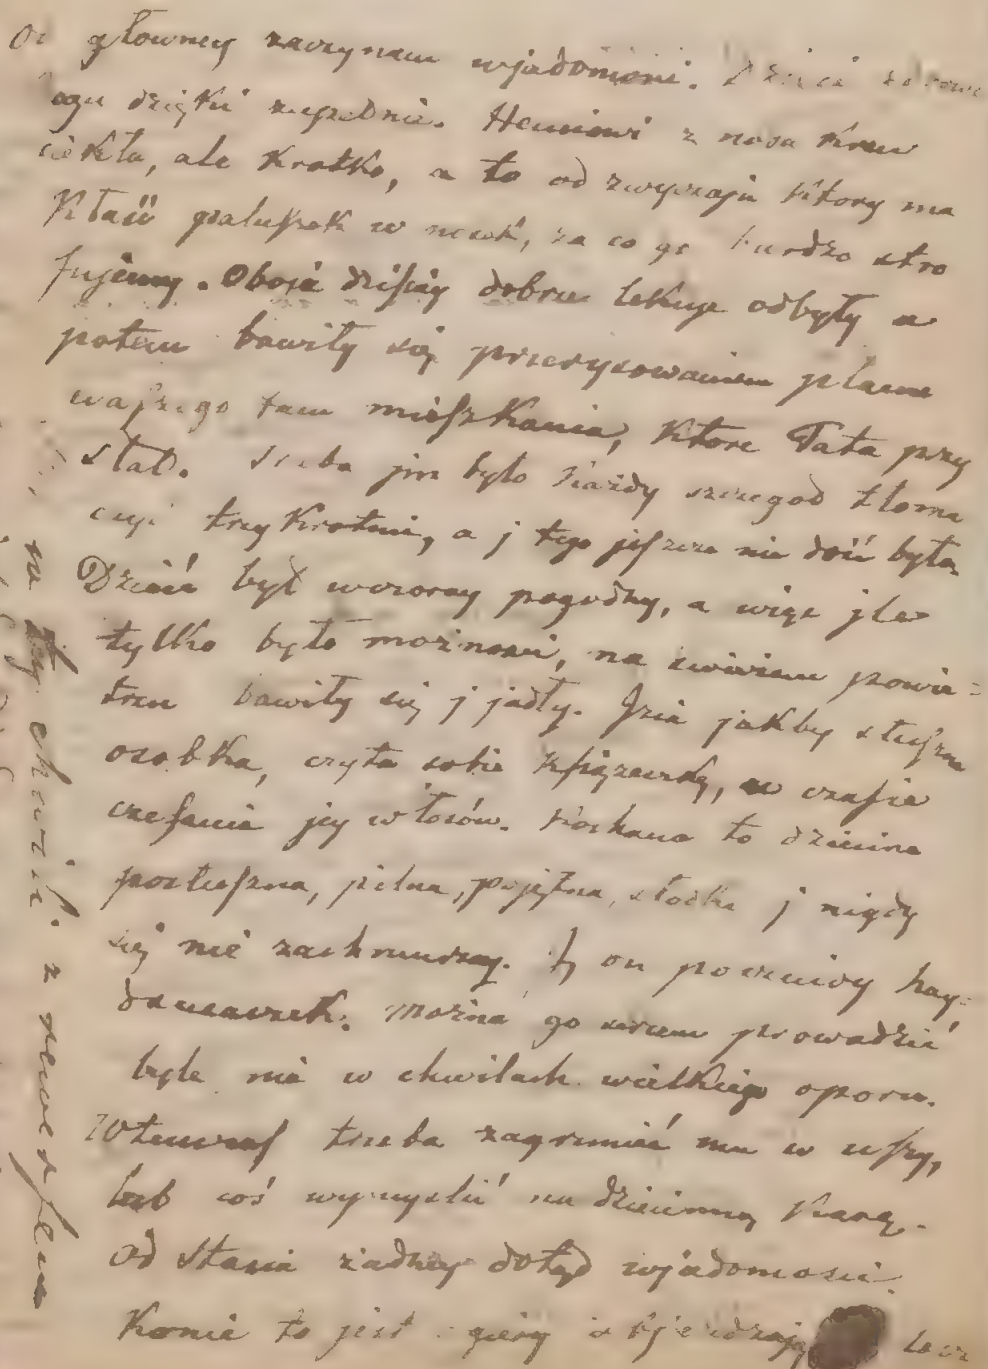 Od głowney zaczynam wjadomosci. Dzieci zdrowe
Bogu dzięki zupełnie. Heniowi z nosa krew
ciekła, ale krotko, a to od zwyczaju ktory ma
kłaść paluszek w nosek, za co go bardzo stro
fujemy. Oboje dzisiay dobrze lekcye odbyły a
potem bawiły się przerysowaniem planu
waszego tam mieszkania, ktore Tata przy
słał. Trzeba jm było każdy szczegoł tłoma
czyć trzykrotnie, a j tego jeszcze nie dość było.
Dzień był wczoray pogodny, a więc jle
tylko było możnosci, na swieżem powie=
trzu bawiły się j jadły. Jzia jakby słuszna
osobka, czyta sobie xsiążeczkę, w czasie
czesania jey włosów. Kochana to dziecina
posłuszna, pilna, pojętna, słodka j nigdy
się nie zachmurzy. J on poczciwy hay=
damaczek. Można go sercem prowadzić
byle nie w chwilach wielkiego oporu.
Wtenczas trzeba zagrzmieć mu w uszy,
lub coś wymyslić na dziecinną karę.
Od Stasia żadney dotąd wjadomosci.
Konie to jest ogiery objeżdzają
w tey chwili z newosflum